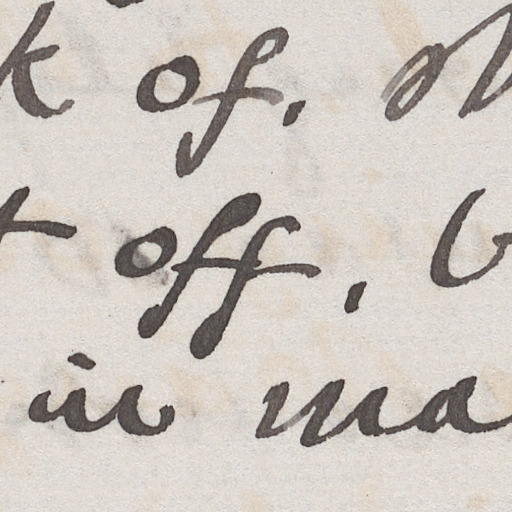 k of.
t off, b
in ma